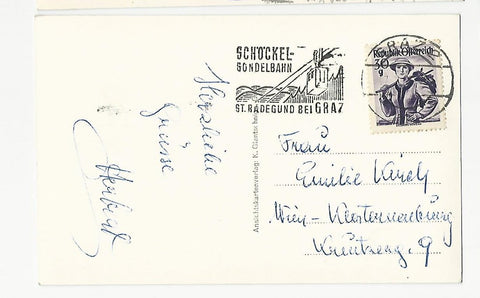 SCHÖCKEL-
GONDELBAHN
ST. RADEGUND BEI GRAZ
GRAZ
Republik Österreich
30
g
Herzliche
Grüsse
Herbert
Ansichtskartenverlag: K.
Frau
Emilie
Wien - Klosterneuburg
9